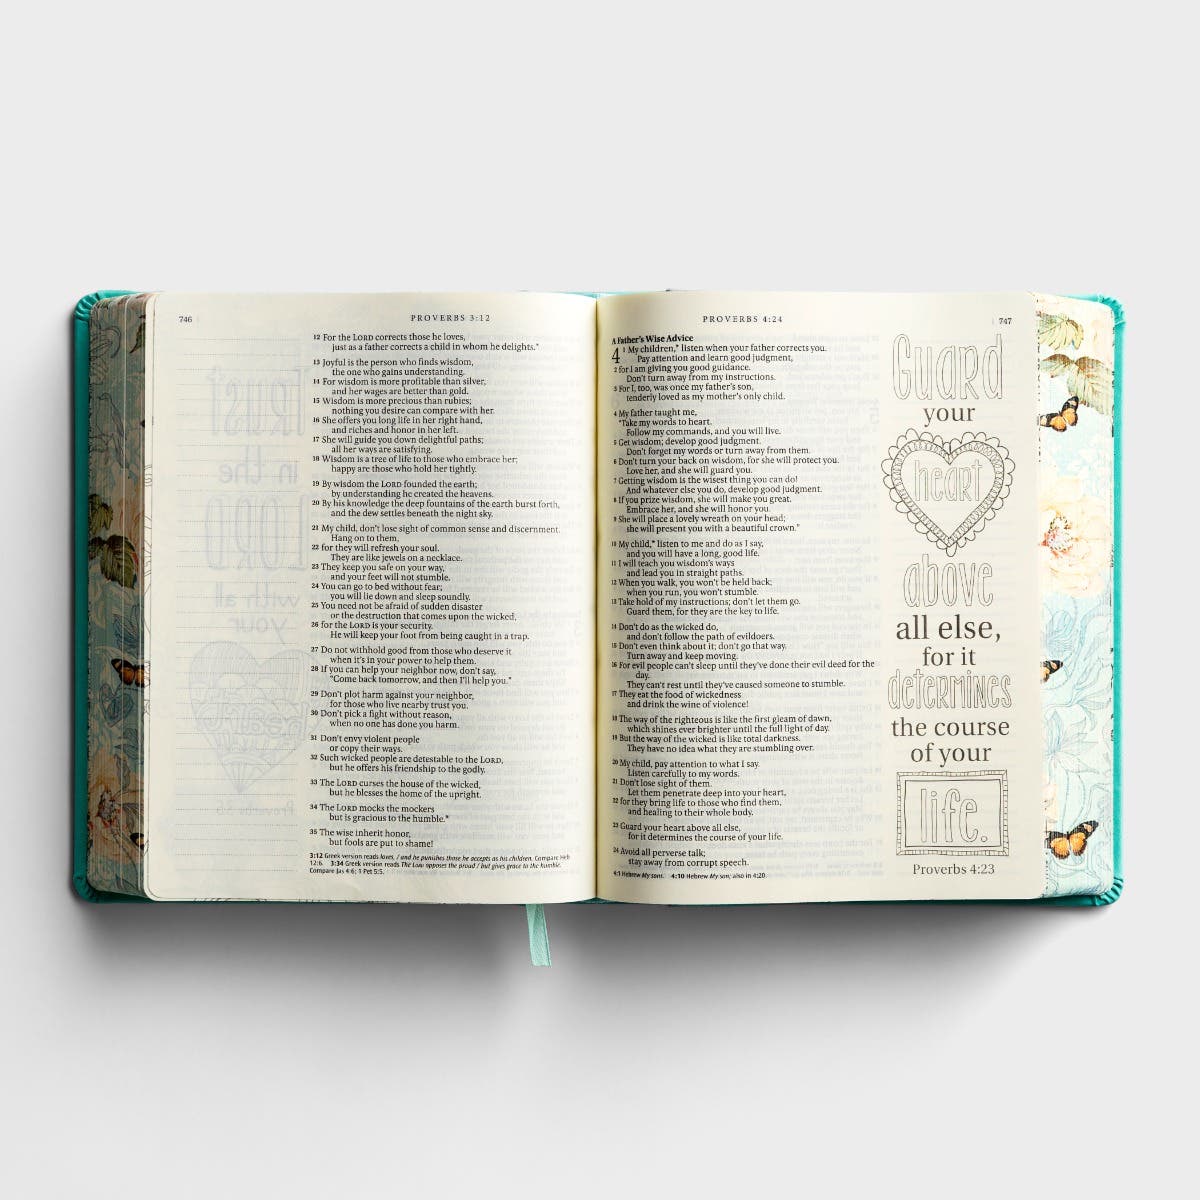 746
PROVERBS 3:12
12 For the LORD corrects those he loves,
just as a father corrects a child in whom he delights.*
13 Joyful is the person who finds wisdom,
the one who gains understanding.
14 For wisdom is more profitable than silver,
and her wages are better than gold.
15 Wisdom is more precious than rubies;
nothing you desire can compare with her.
16 She offers you long life in her right hand,
and riches and honor in her left.
17 She will guide you down delightful paths;
all her ways are satisfying.
18 Wisdom is a tree of life to those who embrace her;
happy are those who hold her tightly.
19 By wisdom the LORD founded the earth;
by understanding he created the heavens.
20 By his knowledge the deep fountains of the earth burst forth,
and the dew settles beneath the night sky.
21 My child, don't lose sight of common sense and discernment.
Hang on to them,
22 for they will refresh your soul.
They are like jewels on a necklace.
23 They keep you safe on your way,
and your feet will not stumble.
24 You can go to bed without fear;
you will lie down and sleep soundly.
25 You need not be afraid of sudden disaster
or the destruction that comes upon the wicked,
26 for the LORD is your security.
He will keep your foot from being caught in a trap.
27 Do not withhold good from those who deserve it
when it's in your power to help them.
28 If you can help your neighbor now, don't say,
"Come back tomorrow, and then I'll help you."
29 Don't plot harm against your neighbor,
for those who live nearby trust you.
30 Don't pick a fight without reason,
when no one has done you harm.
31 Don't envy violent people
or copy their ways.
32 Such wicked people are detestable to the LORD,
but he offers his friendship to the godly.
33 The LORD curses the house of the wicked,
but he blesses the home of the upright.
34 The LORD mocks the mockers
but is gracious to the humble.*
35 The wise inherit honor,
but fools are put to shame!
3:12 Greek version reads loves, / and he punishes those he accepts as his children. Compare Heb
12:6. 3:34 Greek version reads The LORD opposes the proud / but gives grace to the humble.
Compare Jas 4:6; 1 Pet 5:5.
PROVERBS 4:24
747
A Father's Wise Advice
4 1 My children,* listen when your father corrects you.
Pay attention and learn good judgment,
2 for I am giving you good guidance.
Don't turn away from my instructions.
3 For I, too, was once my father's son,
tenderly loved as my mother's only child.
4 My father taught me,
"Take my words to heart.
Follow my commands, and you will live.
5 Get wisdom; develop good judgment.
Don't forget my words or turn away from them.
6 Don't turn your back on wisdom, for she will protect you.
Love her, and she will guard you.
7 Getting wisdom is the wisest thing you can do!
And whatever else you do, develop good judgment.
8 If you prize wisdom, she will make you great.
Embrace her, and she will honor you.
9 She will place a lovely wreath on your head;
she will present you with a beautiful crown."
10 My child,* listen to me and do as I say,
and you will have a long, good life.
11 I will teach you wisdom's ways
and lead you in straight paths.
12 When you walk, you won't be held back;
when you run, you won't stumble.
13 Take hold of my instructions; don't let them go.
Guard them, for they are the key to life.
14 Don't do as the wicked do,
and don't follow the path of evildoers.
15 Don't even think about it; don't go that way.
Turn away and keep moving.
16 For evil people can't sleep until they've done their evil deed for the
day.
They can't rest until they've caused someone to stumble.
17 They eat the food of wickedness
and drink the wine of violence!
18 The way of the righteous is like the first gleam of dawn,
which shines ever brighter until the full light of day.
19 But the way of the wicked is like total darkness.
They have no idea what they are stumbling over.
20 My child, pay attention to what I say.
Listen carefully to my words.
21 Don't lose sight of them.
Let them penetrate deep into your heart,
22 for they bring life to those who find them,
and healing to their whole body.
23 Guard your heart above all else,
for it determines the course of your life.
24 Avoid all perverse talk;
stay away from corrupt speech.
4:1 Hebrew My sons. 4:10 Hebrew My son; also in 4:20.
Guard
your
heart
above
all else,
for it
determines
the course
of your
life.
Proverbs 4:23